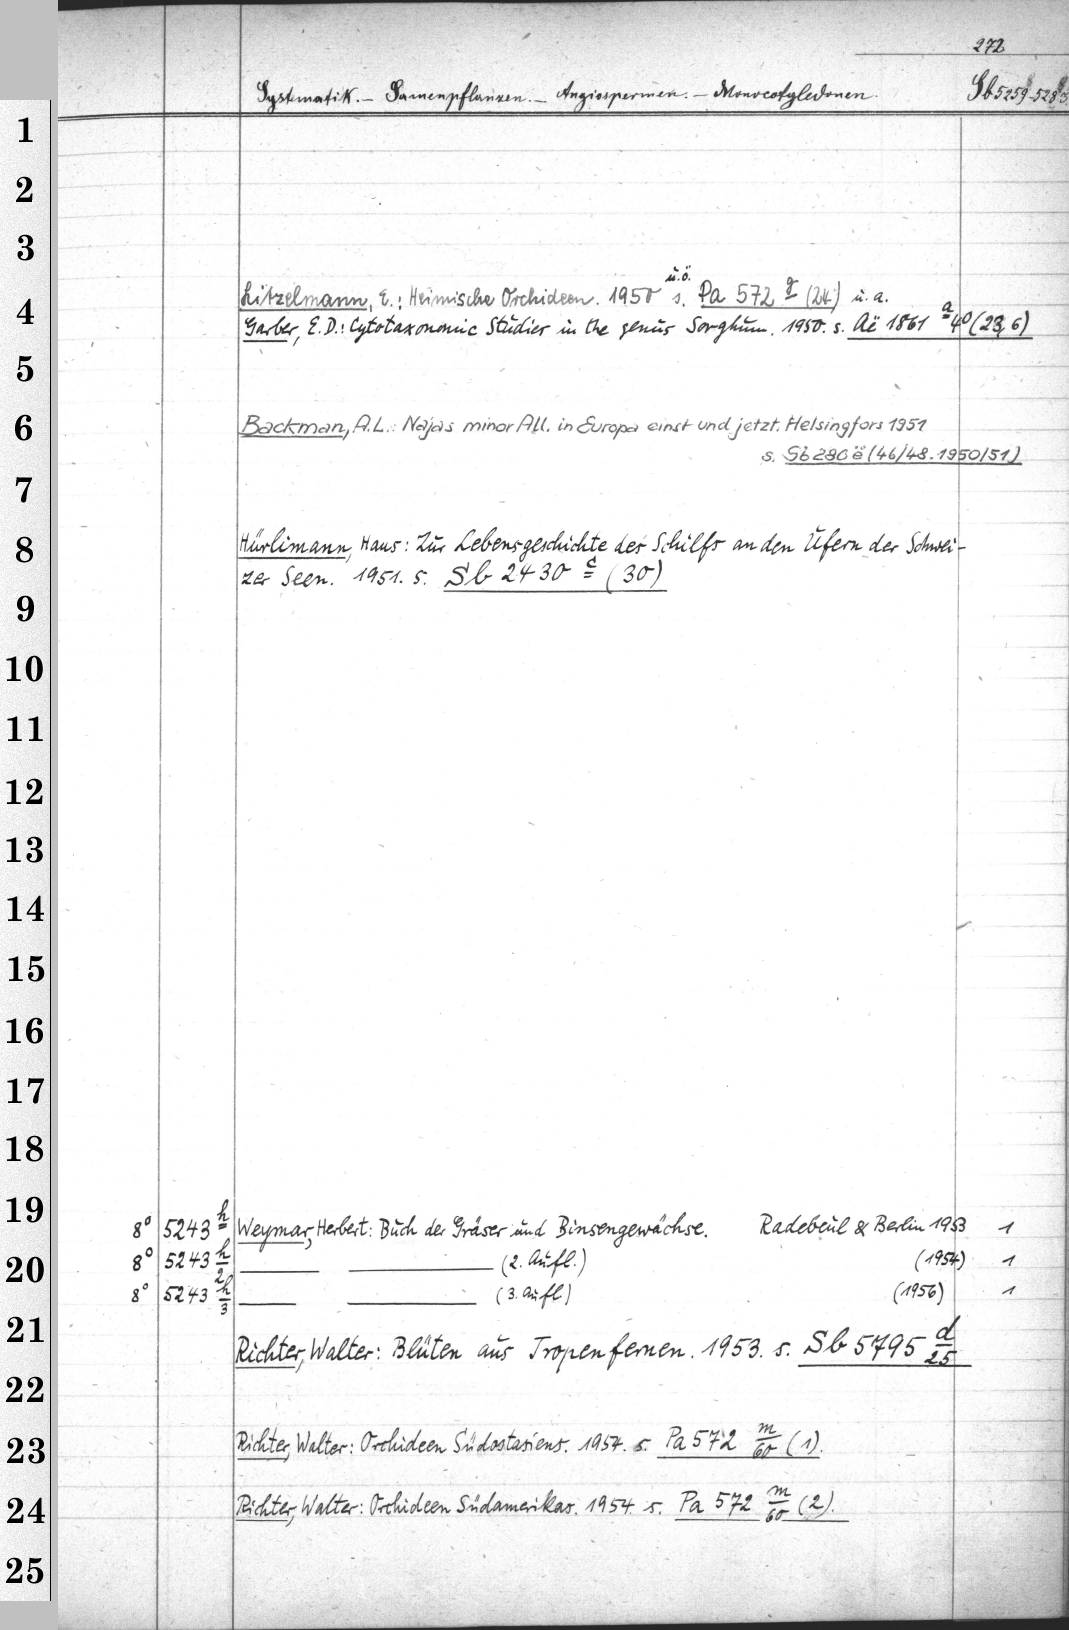 272
Systematik. – Samenpflanzen. – Angiospermen. – Monocotyledonen.
Sb 5259-528
1
2
3
ü.ö.
Litzelmann, E.: Heimische Orchideen. 1950 s. Pa 572 g (24) u. a.
4
Garber, E.D.: Cytotaxonomic Studies in the genus Sorghum. 1950. s. Aë 1861 a 4° (23, 6)
5
6
Backman, A.L.: Najas minor All. in Europa einst und jetzt. Helsingfors 1951
s. Sb 280 ë (46/48. 1950/51)
7
8
Hürlimann, Hans: Zur Lebensgeschichte des Schilfs an den Ufern der Schwei-
zer Seen. 1951. s. Sb 2430 c (30)
9
10
11
12
13
14
15
16
17
18
19
8° 5243 h Weymar, Herbert: Buch der Gräser und Binsengewächse. Radebeul & Berlin 1953 1
20
8° 5243 h/2 (2. Aufl.) (1954) 1
8° 5243 h/3 (3. Aufl) (1956) 1
21
Richter, Walter: Blüten aus Tropenfernen. 1953. s. Sb 5795 d/25
22
23
Richter, Walter: Orchideen Südostasiens. 1954. s. Pa 572 m/60 (1).
24
Richter, Walter: Orchideen Südamerikas. 1954 s. Pa 572 m/60 (2).
25